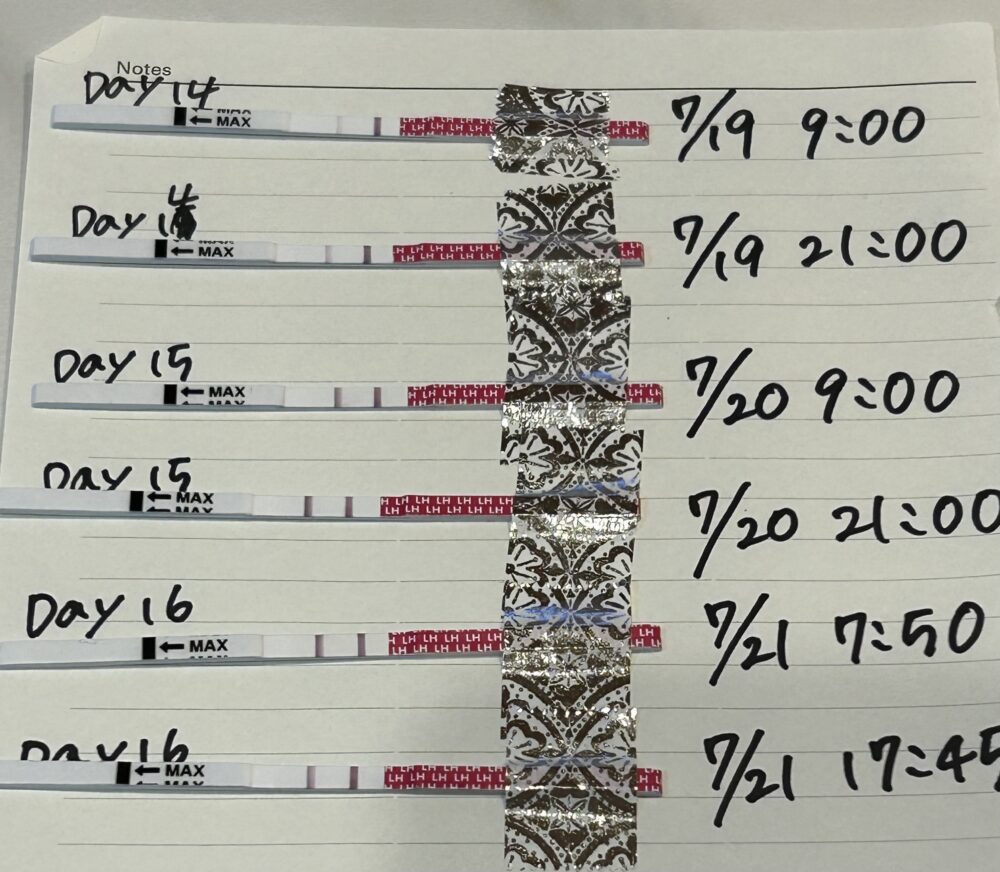 Notes
Day 14
MAX
MAX
LH LH LH LH LH LH
7/19 9:00
Day 14
MAX
MAX
LH LH LH LH LH LH
7/19 21:00
Day 15
MAX
MAX
LH LH LH LH LH
7/20 9:00
Day 15
MAX
MAX
LH LH LH LH LH LH
7/20 21:00
Day 16
MAX
MAX
LH LH LH LH LH
7/21 7:50
Day 16
MAX
MAX
LH LH LH LH LH LH
7/21 17:45